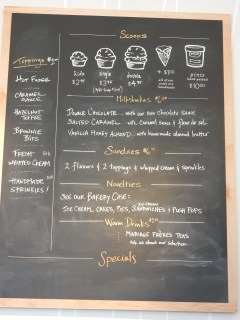 Scoops
Toppings
Kids Single double + $1.00 PINTS
$2.75 $3.75 $4.75
$10.00
HOT FUDGE
CARAMEL SAUCE
HAZELNUT
BROWNIE BITS
FRESH WHIPPED CREAM
HANDMADE SPRINKLES!
Milkshakes
DOUBLE CHOCOLATE - with our own chocolate SAUCE
SALTED CARAMEL - with caramel sauce & fleur de sel
VANILLA HONEY ALMOND - with homemade almond butter
Sundaes
2 flavors & 2 toppings & whipped cream & sprinkles
Novelties
SEE OUR BAKERY CASE:
ICE CREAM CAKES, PIES, SANDWICHES & PUSH POPS
Warm Drinks
MARIAGE FRÈRES TEAS
Ask us about our selection
Specials